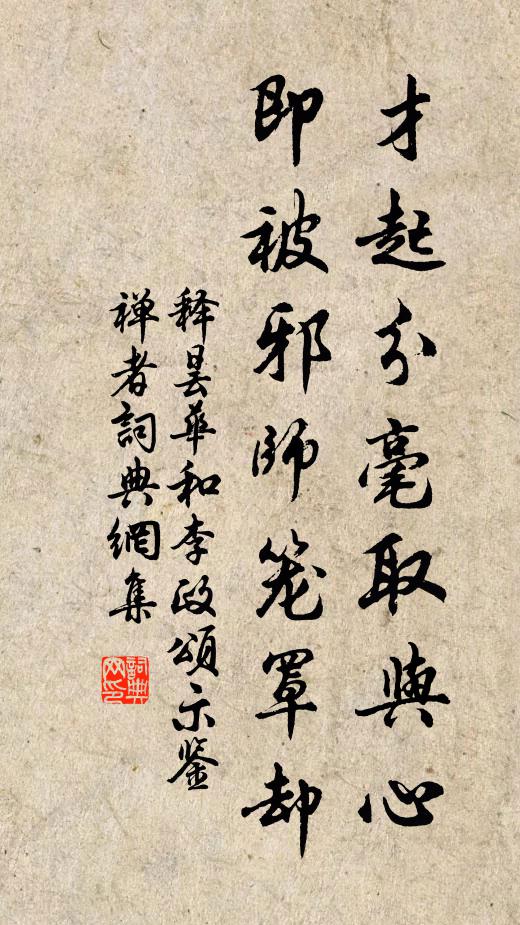 才起分毫取與心
即被邪師笼罩却
释昙华和李政頌示鉴
禅者詞典網集
詞典網印